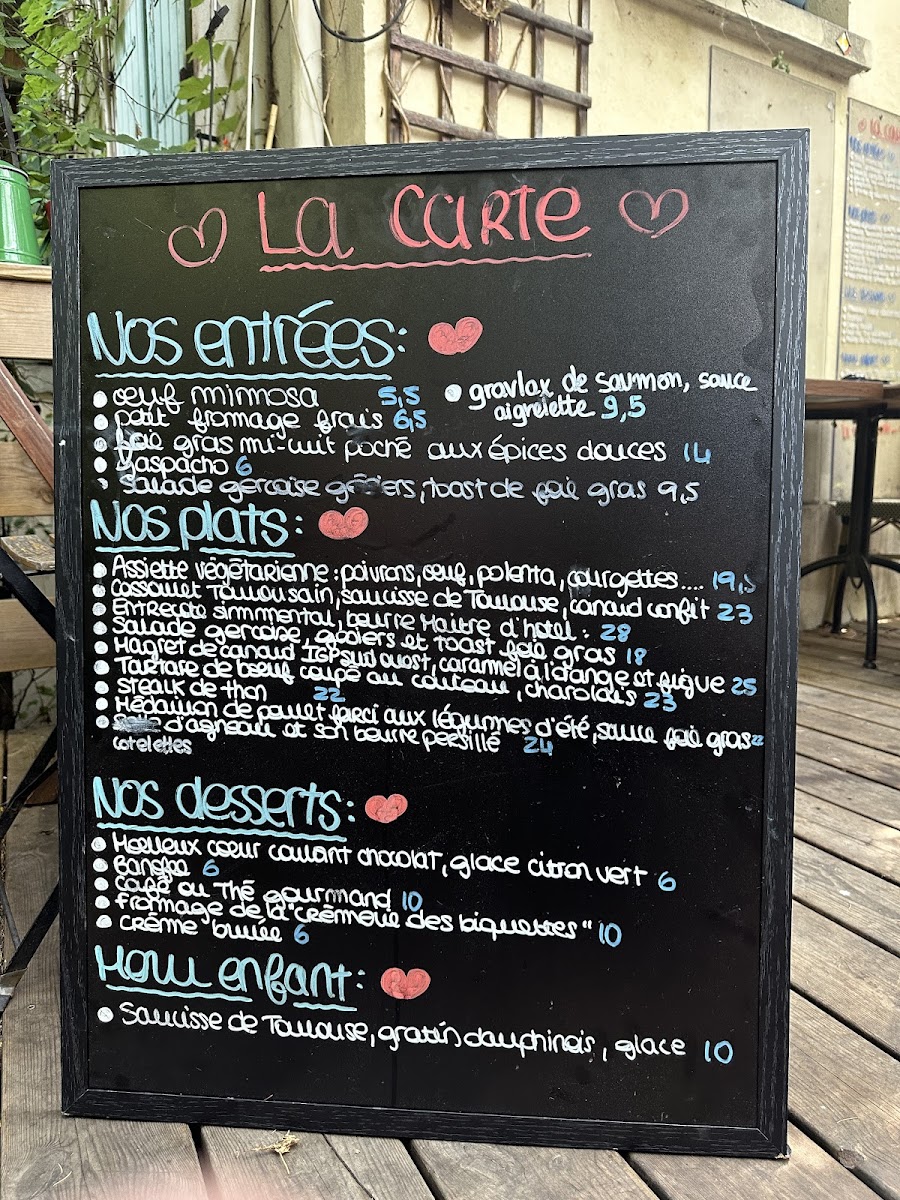 La Carte
Nos entrées:
oeuf mimosa 5,5
gravlax de saumon, sauce
aigrelette 9,5
petit fromage frais 6,5
foie gras mi-cuit poché aux épices douces 14
Gaspacho 6
Salade gersoise, toast de foie gras 9,5
Nos plats:
Assiette végétarienne: poivrons, oeuf, polenta, courgettes.... 19,5
Cassoulet Toulousain, saucisse de Toulouse, canard confit 23
Entrecote simmental, beurre Maitre d'hotel: 28
Salade gersoise, gésiers et toast foie gras 18
Magret de canard IGP sud ouest, caramel à l'orange et figue 25
Tartare de boeuf coupé au couteau, charolais 23
Steak de thon 22
Médaillon de poulet farci aux légumes d'été, sauce foie gras 22
d'agneau et son beurre persillé 24
cotelettes
Nos desserts:
Moelleux coeur coulant chocolat, glace citron vert 6
6
Café ou Thé gourmand 10
fromage de la "crèmerie des biquettes" 10
Crème brulée 6
Menu enfant:
Saucisse de Toulouse, gratin dauphinois, glace 10